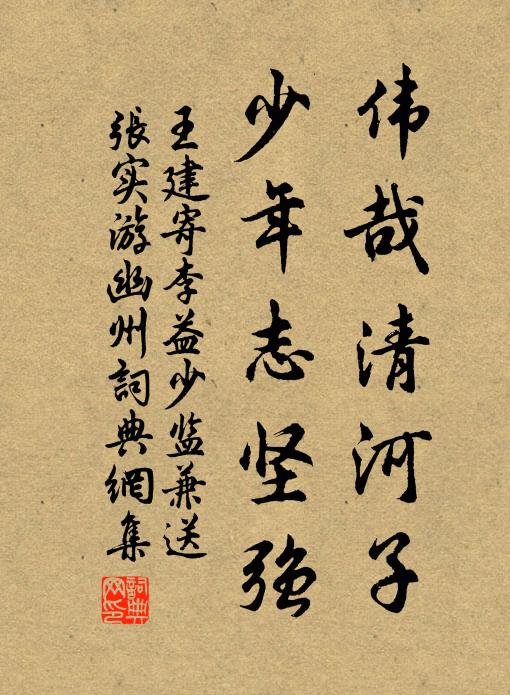 伟哉清河子
少年志坚强
王建寄李益少监兼送
张实游幽州詞典網集
詞典网印